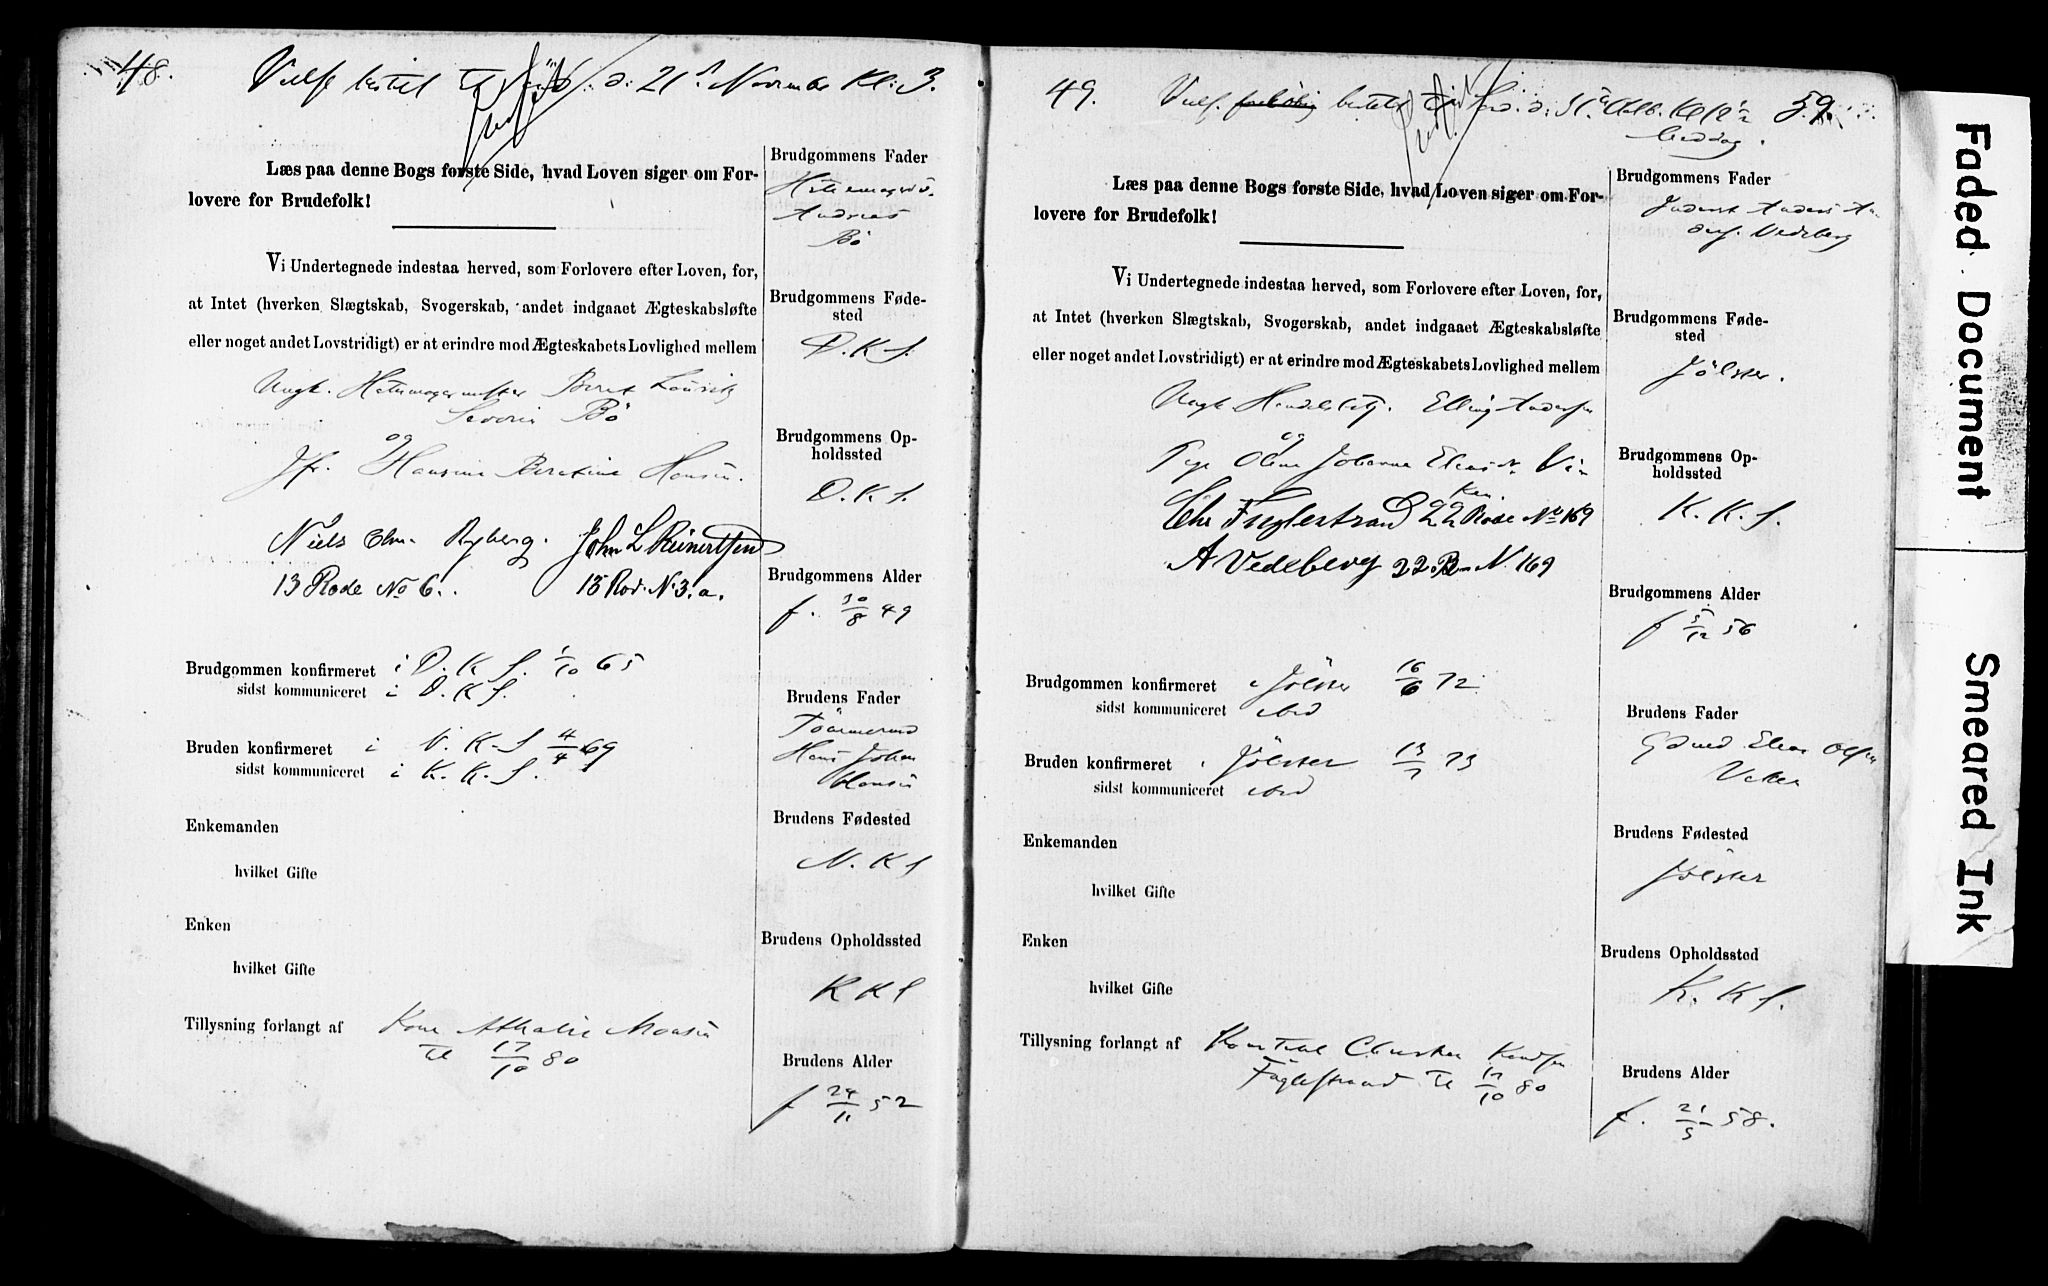 48.
Vielse bestilt til Sönd. d: 21 November Kl: 3.
Læs paa denne Bogs første Side, hvad Loven siger om For-
lovere for Brudefolk!
Vi Undertegnede indestaa herved, som Forlovere efter Loven, for,
at Intet (hverken Slægtskab, Svogerskab, andet indgaaet Ægteskabsløfte
eller noget andet Lovstridigt) er at erindre mod Ægteskabets Lovlighed mellem
Ungk. Hattemagermester Berent Lauritz
Severin Bö
og
Jfr. Hansine Beratine Hansen.
Niels Chr. Ryberg. John L Reinertsen
13 Rode No 6. 15 Rod. N. 3. a.
Brudgommen konfirmeret i D. K. S. 1/10 65
sidst kommuniceret i D. K. S.
Bruden konfirmeret i N. K. S 4/4 69
sidst kommuniceret i K. K. S.
Enkemanden
hvilket Gifte
Enken
hvilket Gifte
Tillysning forlangt af Kone Athalie Monsen
til 17/10 80
Brudgommens Fader
Hattemager
Andreas
Bö
Brudgommens Føde-
sted
D. K. S.
Brudgommens Op-
holdssted
D. K. S.
Brudgommens Alder
f. 30/8 49
Brudens Fader
Tömmermd
Hans Johan
Hansen
Brudens Fødested
N. K S
Brudens Opholdssted
K K S
Brudens Alder
f 24/11 52
49.
59.
Viels. foreløbig bestilt til Sönd. d: 31 Octb. Kl 12 1/2
Læs paa denne Bogs første Side, hvad Loven siger om For-
lovere for Brudefolk!
Vi Undertegnede indestaa herved, som Forlovere efter Loven, for,
at Intet (hverken Slægtskab, Svogerskab, andet indgaaet Ægteskabsløfte
eller noget andet Lovstridigt) er at erindre mod Ægteskabets Lovlighed mellem
Ungk. Handelsbetj. Elling Andersen
og
Pige Oline Johanne Eliasd.
Chr Fuglestrand 22 Rode No 169
A Vedeberg 22 R N. 169
Brudgommen konfirmeret i Jölster 16/6 72
sidst kommuniceret ibid
Bruden konfirmeret i Jölster 13/7 73
sidst kommuniceret ibid
Enkemanden
hvilket Gifte
Enken
hvilket Gifte
Tillysning forlangt af Christen Knudsen
Fuglestrand til 17/10 80
Brudgommens Fader
Inderst Anders An
ders. Vedeberg
Brudgommens Føde-
sted
Jölster.
Brudgommens Op-
holdssted
K. K. S.
Brudgommens Alder
f 5/12 56
Brudens Fader
Gdmd Elias Olsen
Brudens Fødested
Jölster
Brudens Opholdssted
K. K S.
Brudens Alder
f. 21/5 58.
Faded Document
Smeared Ink